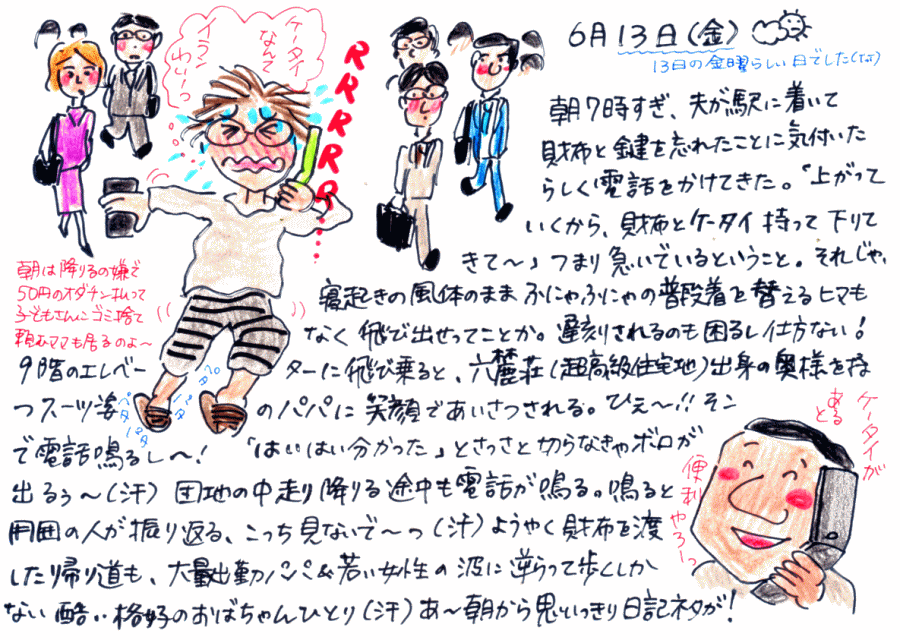 6月13日(金)
13日の金曜らしい日でした(T▽T)
ケータイ
なんて
イラン
わぃ〜っ
RRRRR
朝7時すぎ、夫が駅に着いて
財布と鍵を忘れたことに気付いた
らしく電話をかけてきた。「上がって
いくから、財布とケータイ持って下りて
きて〜」つまり急いでいるということ。それじゃ、
寝起きの風体のままふにゃふにゃの普段着を替えるヒマも
なく飛び出せってことか。遅刻されるのも困るし仕方ない!
9階のエレベーターに飛び乗ると、六麓荘(超高級住宅地)出身の奥様を持
つスーツ姿のパパに笑顔であいさつされる。ひぇ〜!!そン
で電話鳴るし〜!「はいはい分かった」とさっさと切らなきゃボロが
出るぅ〜(汗)団地の中走り降りる途中も電話が鳴る。鳴ると
周囲の人が振り返る、こっち見ないで〜っ(汗)ようやく財布を渡
したり帰り道も、大量出勤パパ&若い女性の波に逆らって歩くしか
ない酷い格好のおばちゃんひとり(汗)あ〜朝から思いっきり日記ネタが!
朝は降りるの嫌で
50円のオダチン払って
子どもさんにゴミ捨て
頼むママも居るのよ〜
ペタ
パタ
ペタ
パタ
ケータイが
あると
便利やろ〜っ